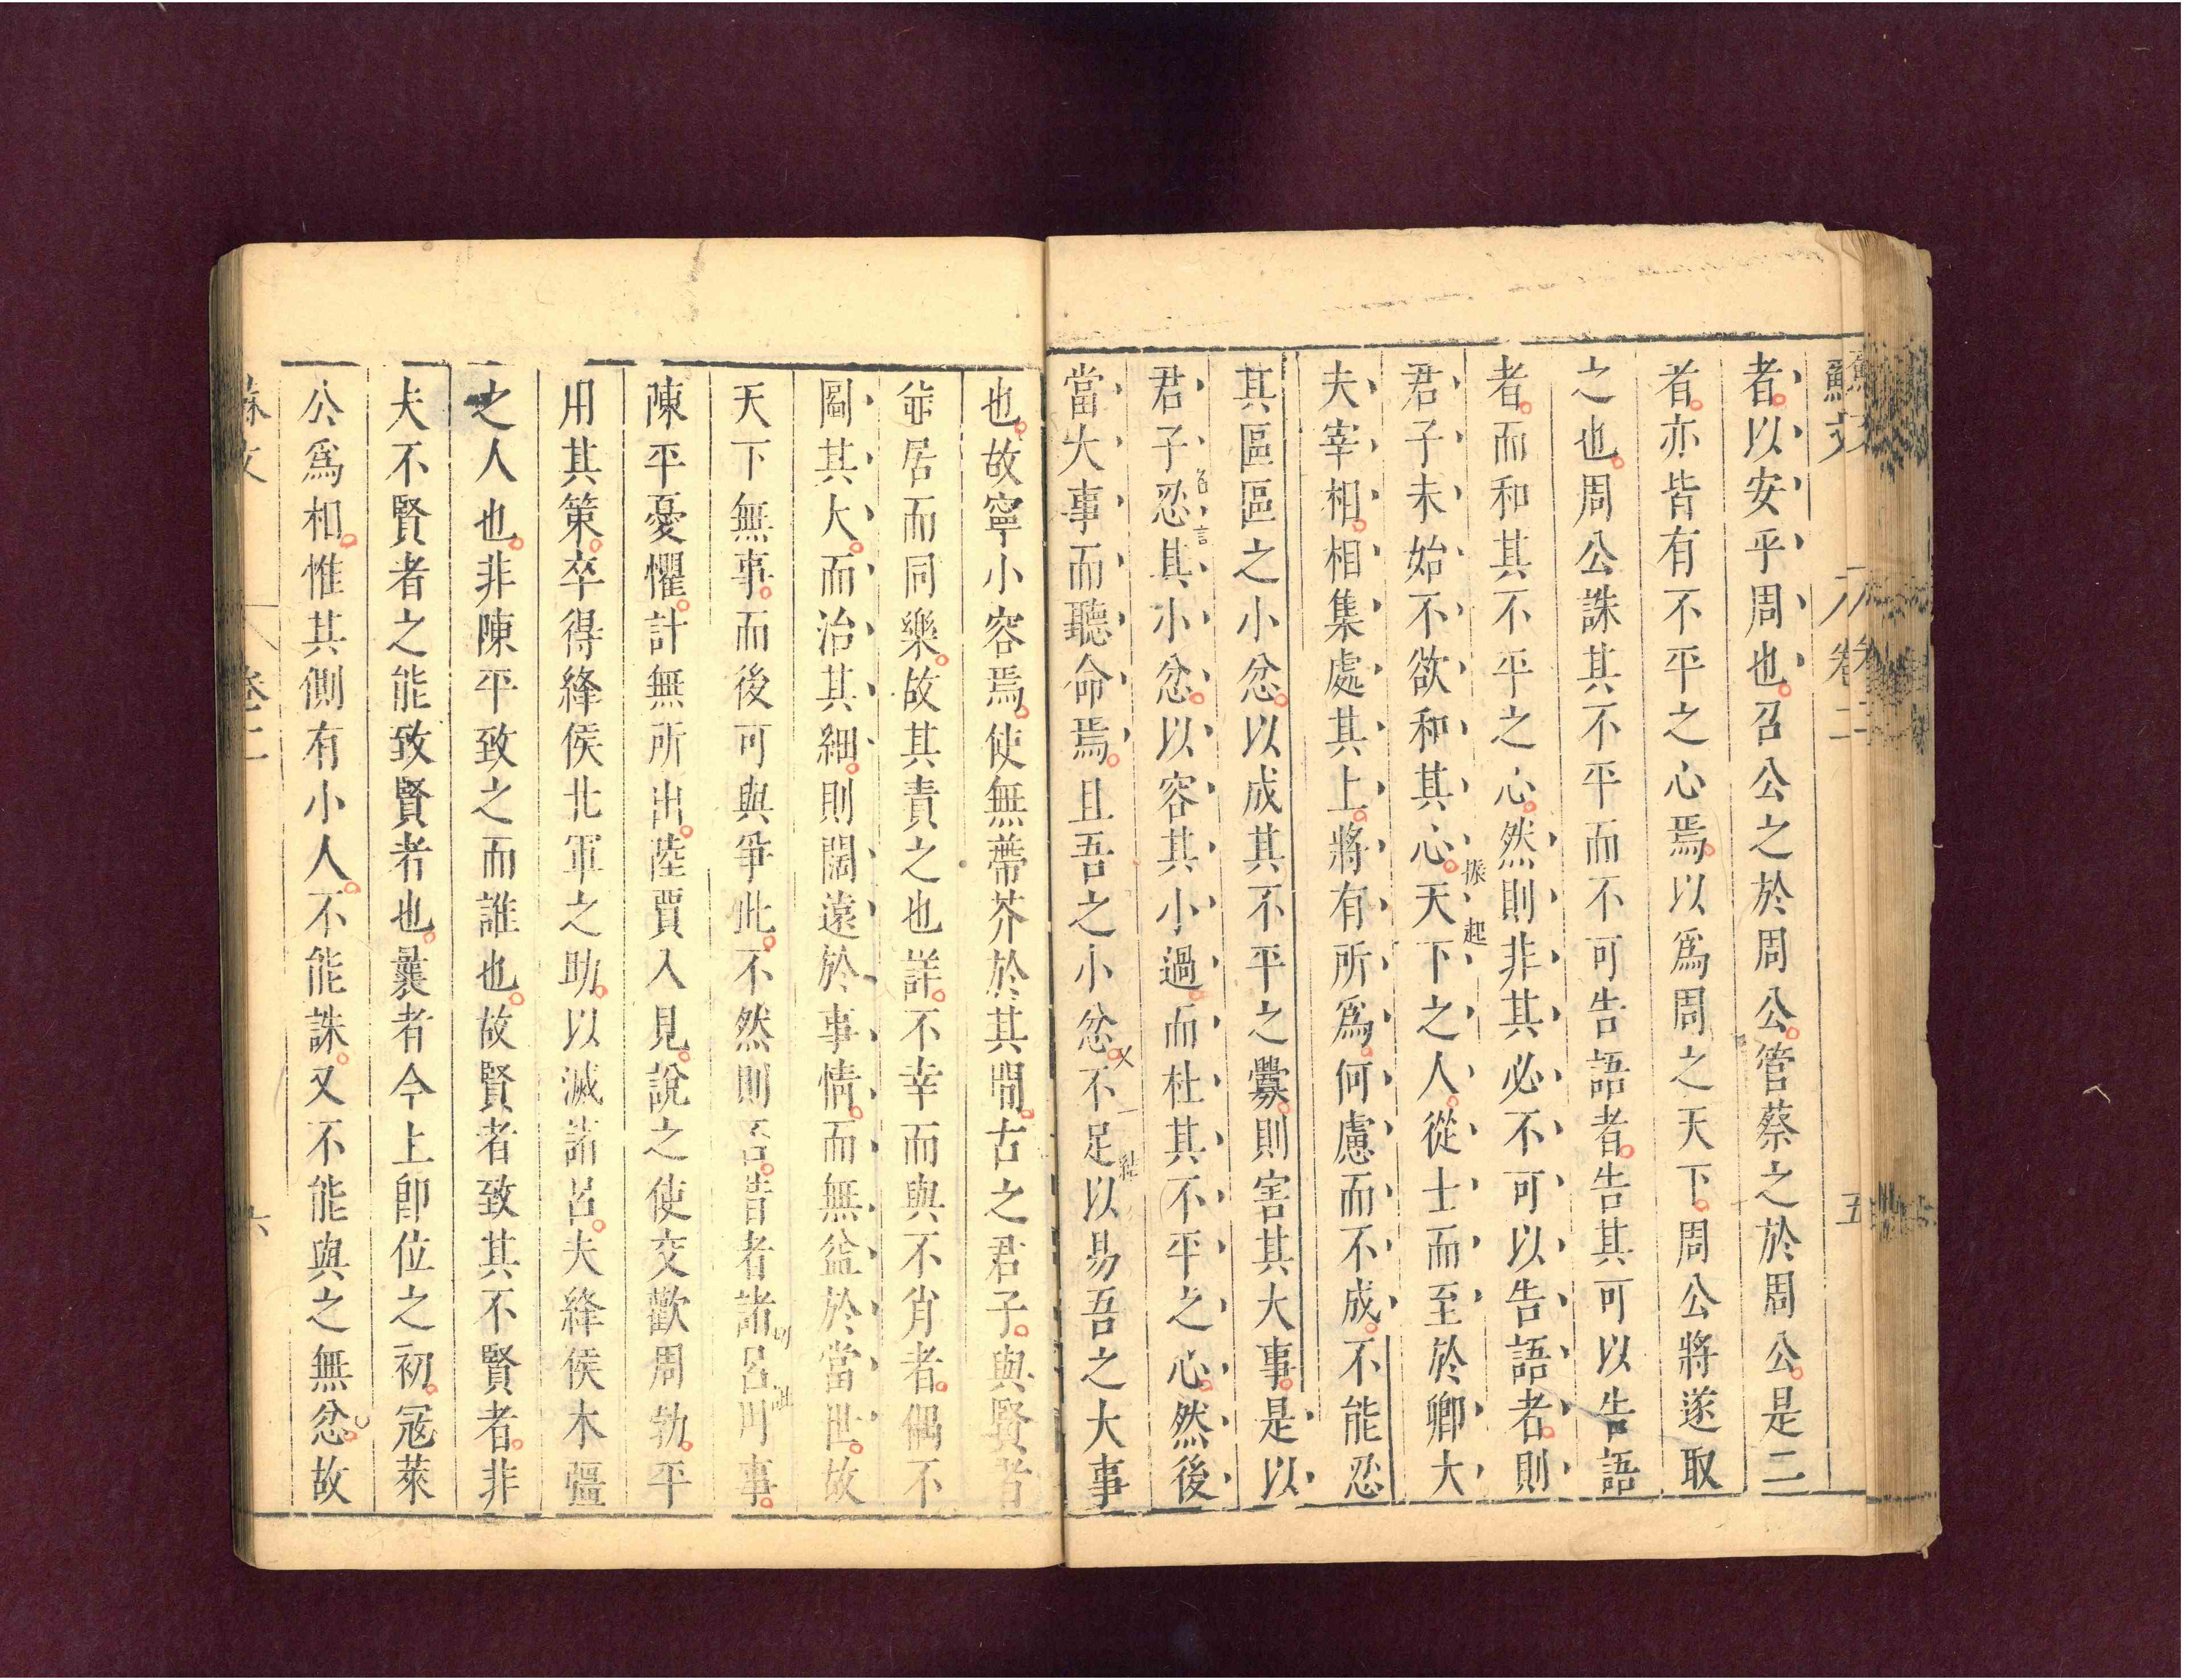 蘇文 卷二 五
者以安乎周也召公之於周公管蔡之於周公是二
者亦皆有不平之心焉以爲周之天下周公將遂取
之也周公誅其不平而不可告語者告其可以告語
者而和其不平之心然則非其必不可以告語者則
振起
君子未始不欲和其心天下之人從士而至於卿大
夫宰相相集處其上將有所爲何慮而不成不能忍
其區區之小忿以成其不平之釁則害其大事是以
名言
君子忍其小忿以容其小過而杜其不平之心然後
又一
當大事而聽命焉且吾之小忿不足以易吾之大事
也故寧小容焉使無蔕芥於其間古之君子與賢者
並居而同樂故其責之也詳不幸而與不肖者偶不
圖其大而治其細則闊遠於事情而無益於當世故
天下無事而後可與爭此不然則否昔者諸呂用事
陳平憂懼計無所出陸賈入見說之使交歡周勃平
用其策卒得絳侯北軍之助以滅諸呂夫絳侯木彊
之人也非陳平致之而誰也故賢者致其不賢者非
夫不賢者之能致賢者也曩者今上卽位之初寇萊
公爲相惟其側有小人不能誅又不能與之無忿故
蘇文 卷二 六